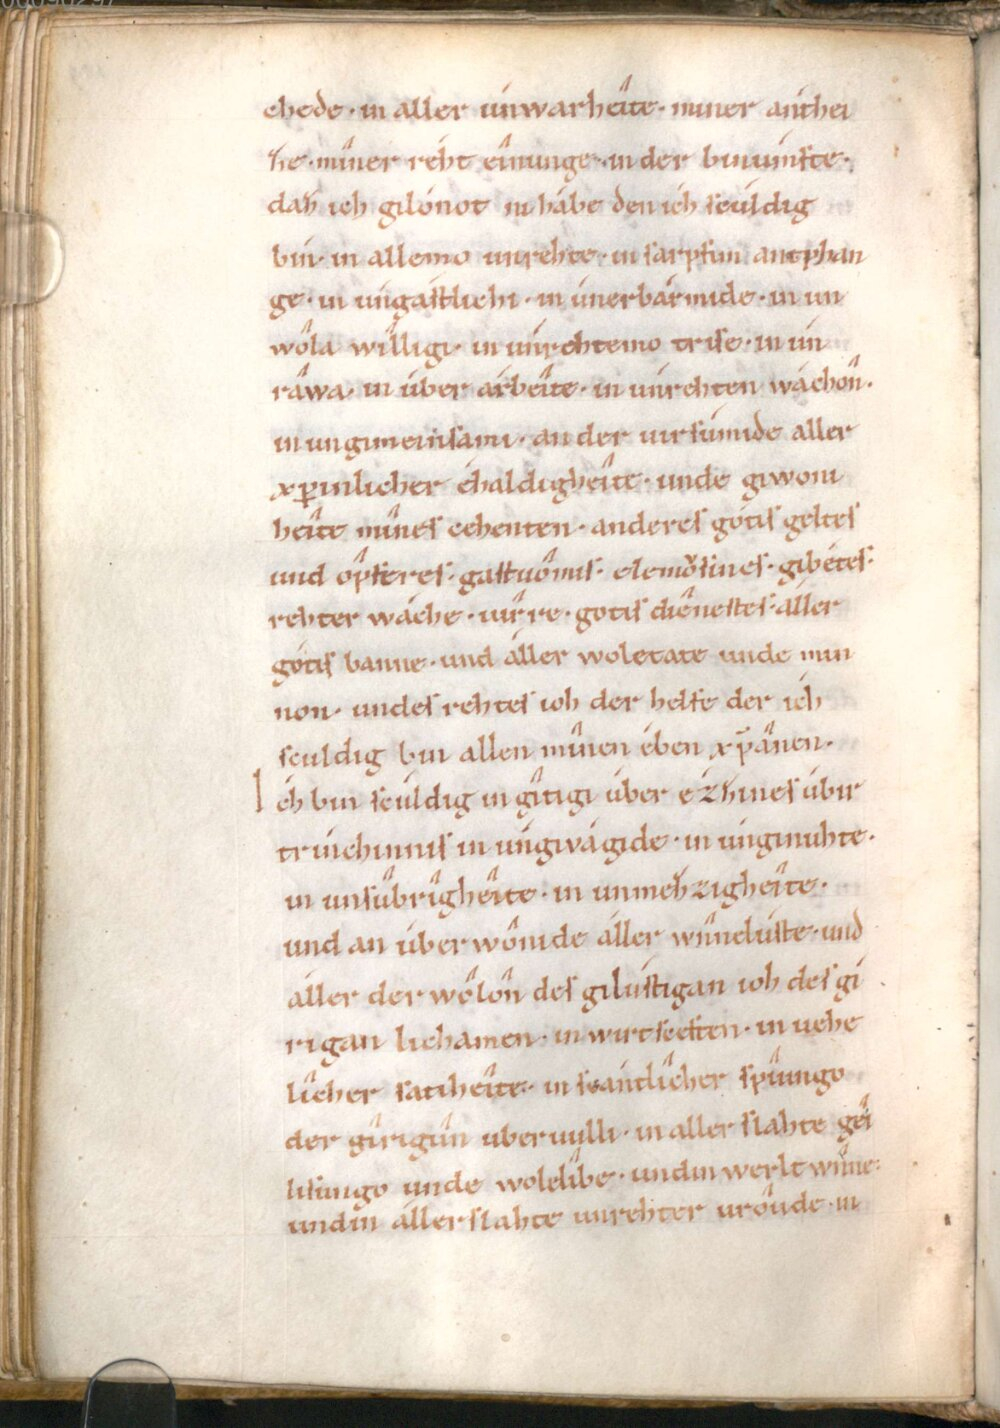 chede · in aller únwarheîte · miner anthei
he · mîner reht eînunge · in der biuuînfte ·
daz ich gilônot ni hábe den ich scúldig
bin · in allemo unrehte · in sarpfun antphan
ge · in úngastlichi · in únerbármide · in un
wôla willigi · in únrehtemo trise · in ún
râwa · in úber árbeîte · in únrehten wáchôn ·
in ungimeinsami · an der uirsúmide aller
xp̄inlicher éhaldigheîte · unde giwoni
heîte mînes cehenten · anderes gótis geltes
und ópferes · gastuômis · elemôsines · gibétes ·
rehter wáche · uîrre · gotis diênestes · áller
gótis banne · und áller woletate unde min
non · undes rehtes ioh der helfe der ích
sculdig bin allen mînen ében xp̄ânen ·
Ich bin scúldig in gîtigi úber ézzines úbir
trinchinnis in úngiwágide · in únginuhte ·
in unsûbrîgheîte · in unmezzigheîte ·
und an úber wônide áller wúnnelúste · und
áller der wôlôn des gilústigan ioh des gi
rigan lichamen · in wirtsceften · in uehe
lîcher satiheîte · in scántlîcher spîungo
der gîrigûn uberuulli · in aller slahte gêi
lisungo unde woleîbe · undin werlt wúnne ·
undin állerslahte unrehter urôude · in